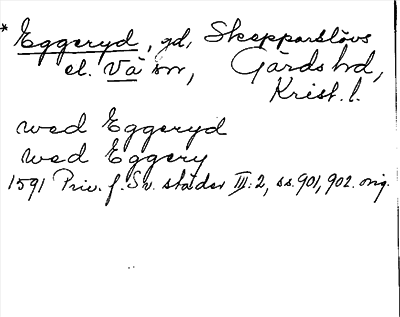 * Eggeryd, gd, Skepparslövs
el. Vä snr, Gärds hd,
Krist. l.
wed Eggeryd
wed Eggery
1591 Priv. f. Sv. städer III:2, ss. 901, 902. orig.